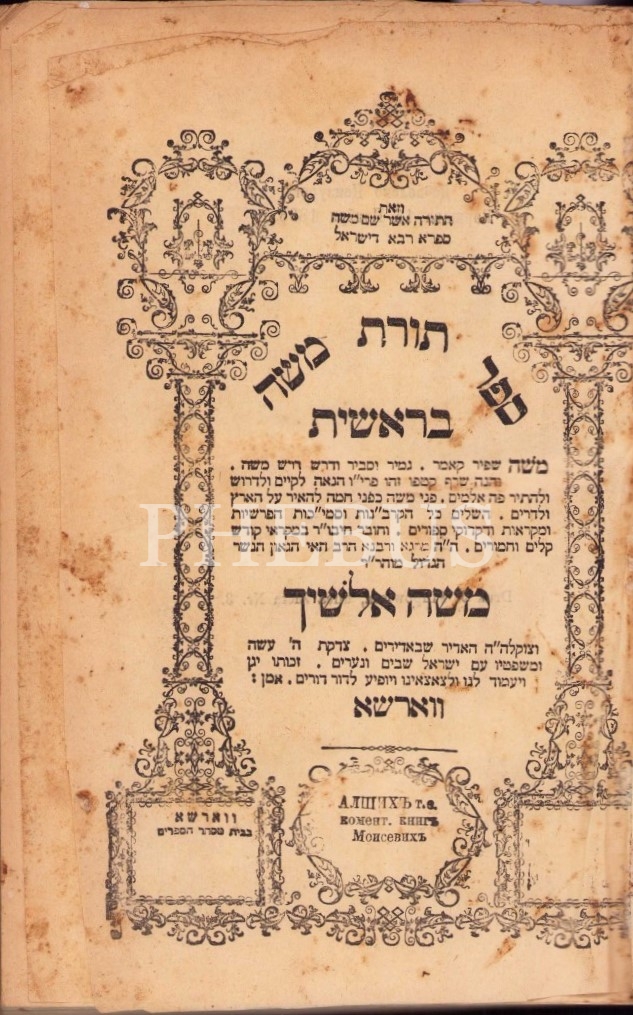 וזאת
התורה אשר שם משה
ספרא רבא דישראל
ספר תורת משה
בראשית
משה שפיר קאמר . גמיר וסביר ודרש דרש משה .
והנה שרף קמפו זהו פרי"ו הנאה לקיים ולדרוש
ולהתיר פה אלמים . פני משה כפני חמה להאיר על הארץ
ולדרים . השלים כל הקרב"נות וסמי"כות הפרשיות
ומקראות ודקדוקי ספורים . וחובר חיבו"ר במקראי קודש
קלים וחמורים . ה"ה מרנא ורבנא הרב האי הגאון הנשר
הגדול מוהר"ר
משה אלשיך
זצוקלה"ה האדיר שבאדירים . צדקת ה' עשה
ומשפטיו עם ישראל שבים ונערים . זכותו יגן
ויעמוד לנו ולצאצאינו ויופיע לדור דורים . אמן :
ווארשא
ווארשא
בבית מסחר הספרים
АЛШИХЪ т. е.
комент. книгъ
Моисевихъ